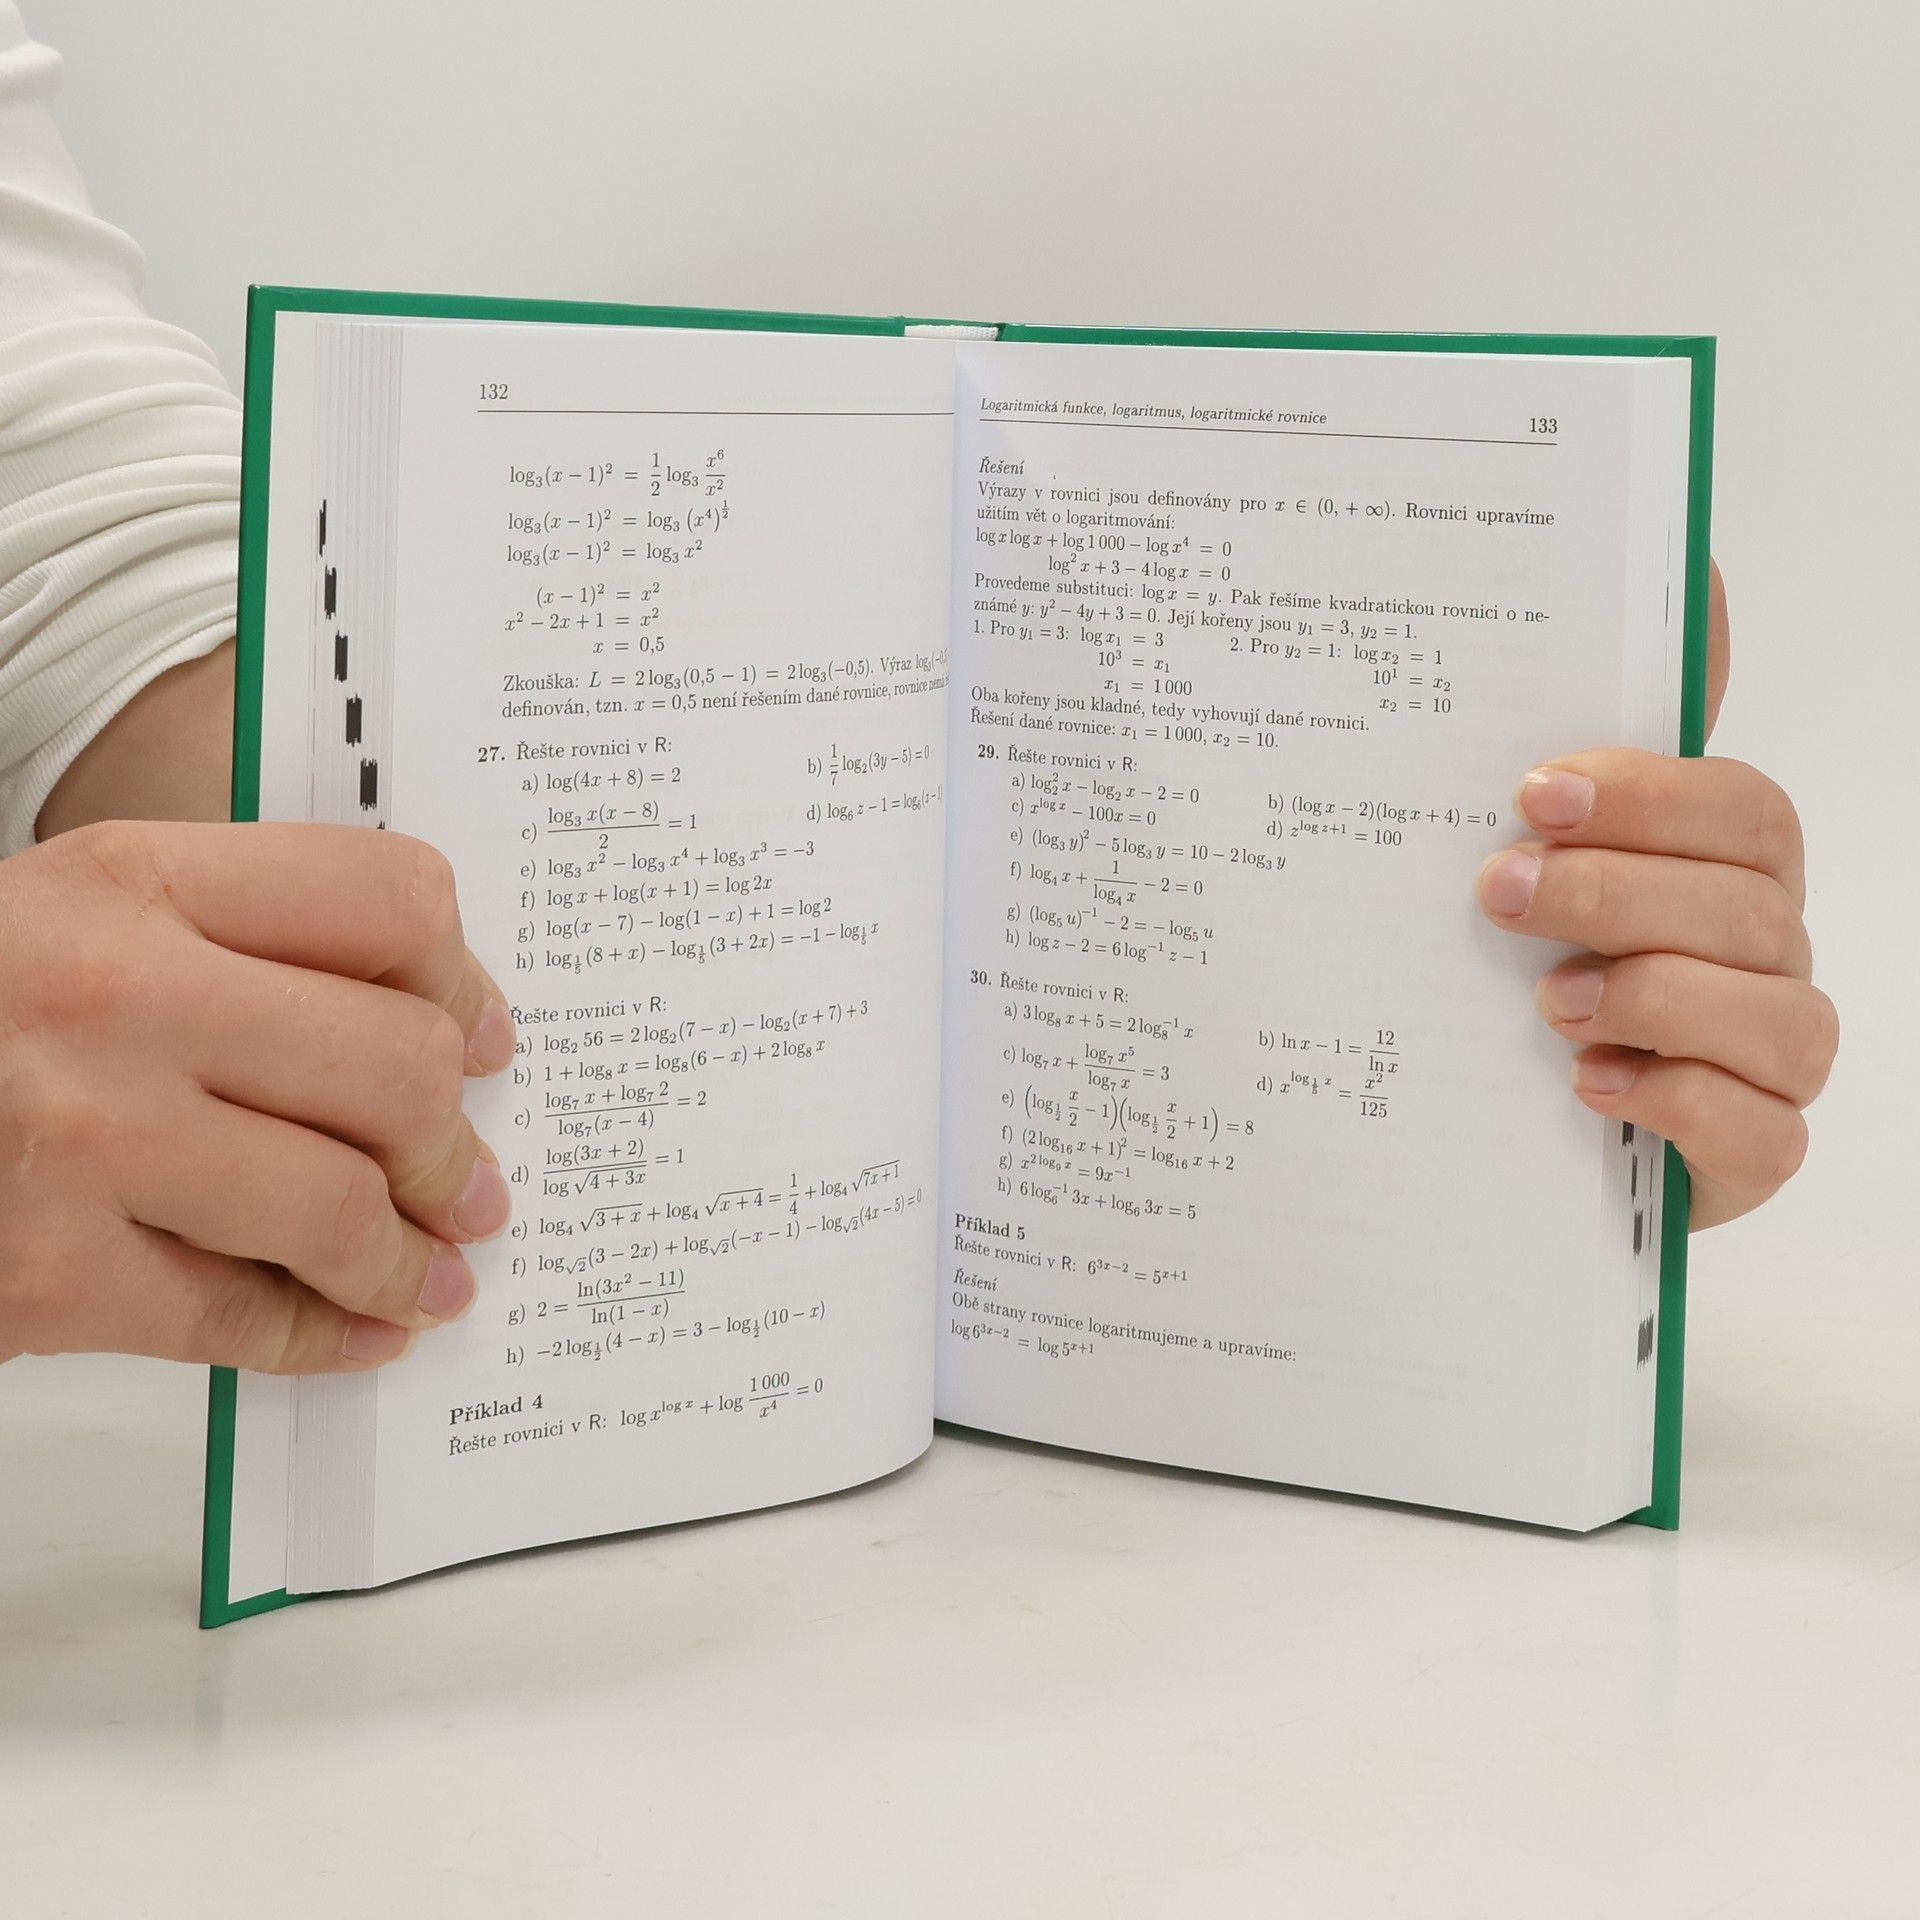 132
log₃(x − 1)² = 1/2 log₃ x⁶/x²
log₃(x − 1)² = log₃ (x⁴)^(1/2)
log₃(x − 1)² = log₃ x²
(x − 1)² = x²
x² − 2x + 1 = x²
x = 0,5
Zkouška: L = 2 log₃(0,5 − 1) = 2 log₃(−0,5). Výraz
definován, tzn. x = 0,5 není řešením dané rovnice, rovnice
27. Řešte rovnici v R:
a) log(4x + 8) = 2 b) 1/7 log₂(3y − 5) = 0
c) log₃ x(x − 8)/2 = 1 d) log₆ z − 1 = log₆(z − 1
e) log₃ x² − log₃ x⁴ + log₃ x³ = −3
f) log x + log(x + 1) = log 2x
g) log(x − 7) − log(1 − x) + 1 = log 2
h) log_(1/5)(8 + x) − log_(1/5)(3 + 2x) = −1 − log_(1/5) x
Řešte rovnici v R:
a) log₂ 56 = 2 log₂(7 − x) − log₂(x + 7) + 3
b) 1 + log₈ x = log₈(6 − x) + 2 log₈ x
c) (log₇ x + log₇ 2)/(log₇(x − 4)) = 2
d) log(3x + 2)/log √(4 + 3x) = 1
e) log₄ √(3 + x) + log₄ √(x + 4) = 1/4 + log₄ √(7x + 1)
f) log_√2(3 − 2x) + log_√2(−x − 1) − log_√2(4x − 5) = 0
g) 2 = ln(3x² − 11)/ln(1 − x)
h) −2 log_(1/2)(4 − x) = 3 − log_(1/2)(10 − x)
Příklad 4
Řešte rovnici v R: log x^(log x) + log 1 000/x⁴ = 0
Logaritmická funkce, logaritmus, logaritmické rovnice 133
Řešení
Výrazy v rovnici jsou definovány pro x ∈ (0, + ∞). Rovnici upravíme
užitím vět o logaritmování:
log x log x + log 1 000 − log x⁴ = 0
log² x + 3 − 4 log x = 0
Provedeme substituci: log x = y. Pak řešíme kvadratickou rovnici o ne-
známé y: y² − 4y + 3 = 0. Její kořeny jsou y₁ = 3, y₂ = 1.
1. Pro y₁ = 3: log x₁ = 3 2. Pro y₂ = 1: log x₂ = 1
10³ = x₁ 10¹ = x₂
x₁ = 1 000 x₂ = 10
Oba kořeny jsou kladné, tedy vyhovují dané rovnici.
Řešení dané rovnice: x₁ = 1 000, x₂ = 10.
29. Řešte rovnici v R:
a) log₂² x − log₂ x − 2 = 0 b) (log x − 2)(log x + 4) = 0
c) x^(log x) − 100x = 0 d) z^(log z+1) = 100
e) (log₃ y)² − 5 log₃ y = 10 − 2 log₃ y
f) log₄ x + 1/log₄ x − 2 = 0
g) (log₅ u)⁻¹ − 2 = − log₅ u
h) log z − 2 = 6 log⁻¹ z − 1
30. Řešte rovnici v R:
a) 3 log₈ x + 5 = 2 log₈⁻¹ x b) ln x − 1 = 12/ln x
c) log₇ x + log₇ x⁵/log₇ x = 3 d) x^(log_(1/5) x) = x²/125
e) (log_(1/2) x/2 − 1)(log_(1/2) x/2 + 1) = 8
f) (2 log₁₆ x + 1)² = log₁₆ x + 2
g) x^(2 log₉ x) = 9x⁻¹
h) 6 log₆⁻¹ 3x + log₆ 3x = 5
Příklad 5
Řešte rovnici v R: 6^(3x−2) = 5^(x+1)
Řešení
Obě strany rovnice logaritmujeme a upravíme:
log 6^(3x−2) = log 5^(x+1)